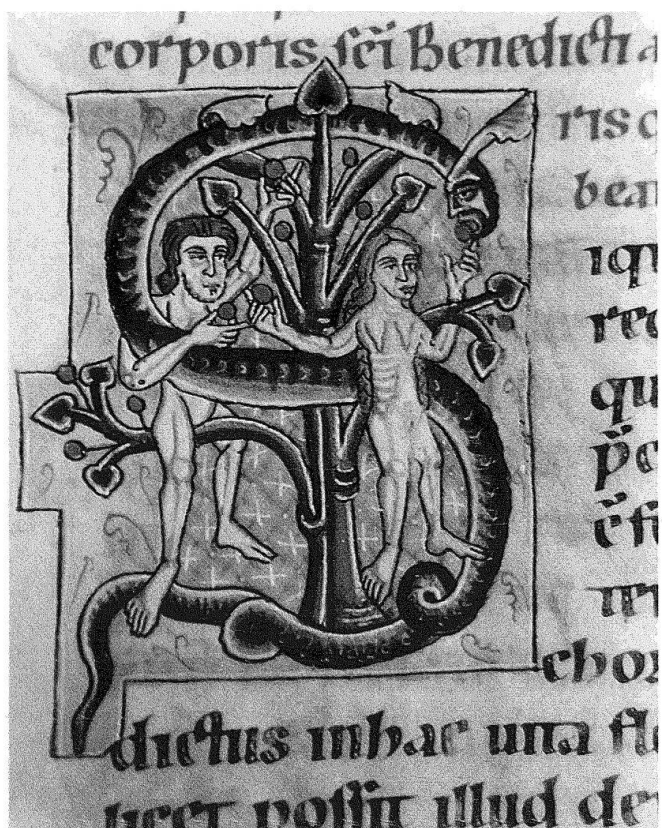 corporis sc̄i Benedicti a
ris c
bea
iqu
re
qu
p
chor
dictus in hac una fle
licet possit illud de